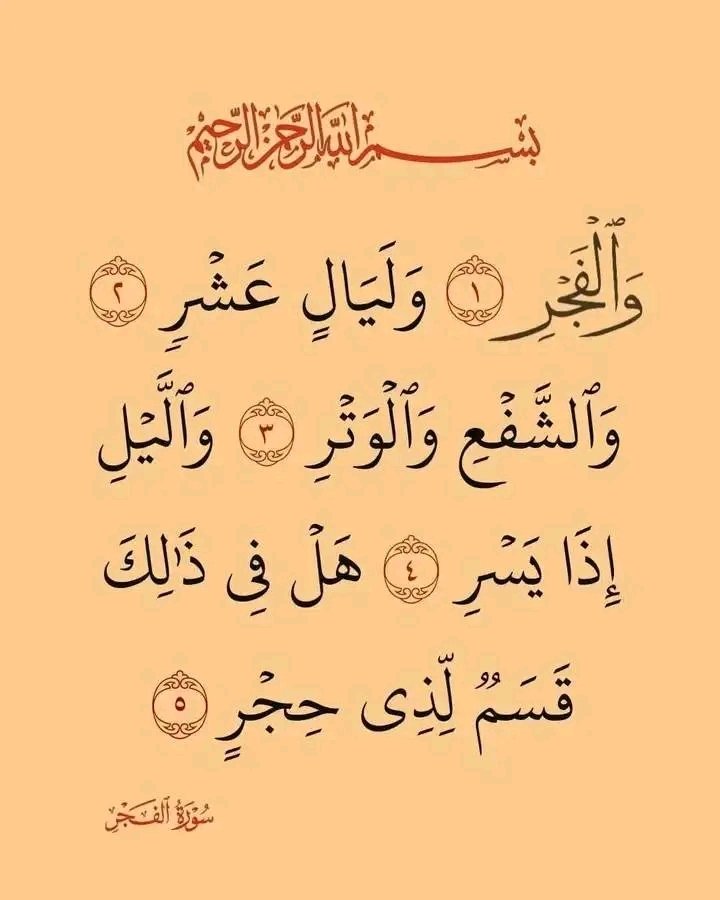 بسم الله الرحمن الرحيم
وَٱلْفَجْرِ ١ وَلَيَالٍ عَشْرٍ ٢
وَٱلشَّفْعِ وَٱلْوَتْرِ ٣ وَٱلَّيْلِ
إِذَا يَسْرِ ٤ هَلْ فِى ذَٰلِكَ
قَسَمٌ لِّذِى حِجْرٍ ٥
سُورَةُ ٱلفَجْرِ